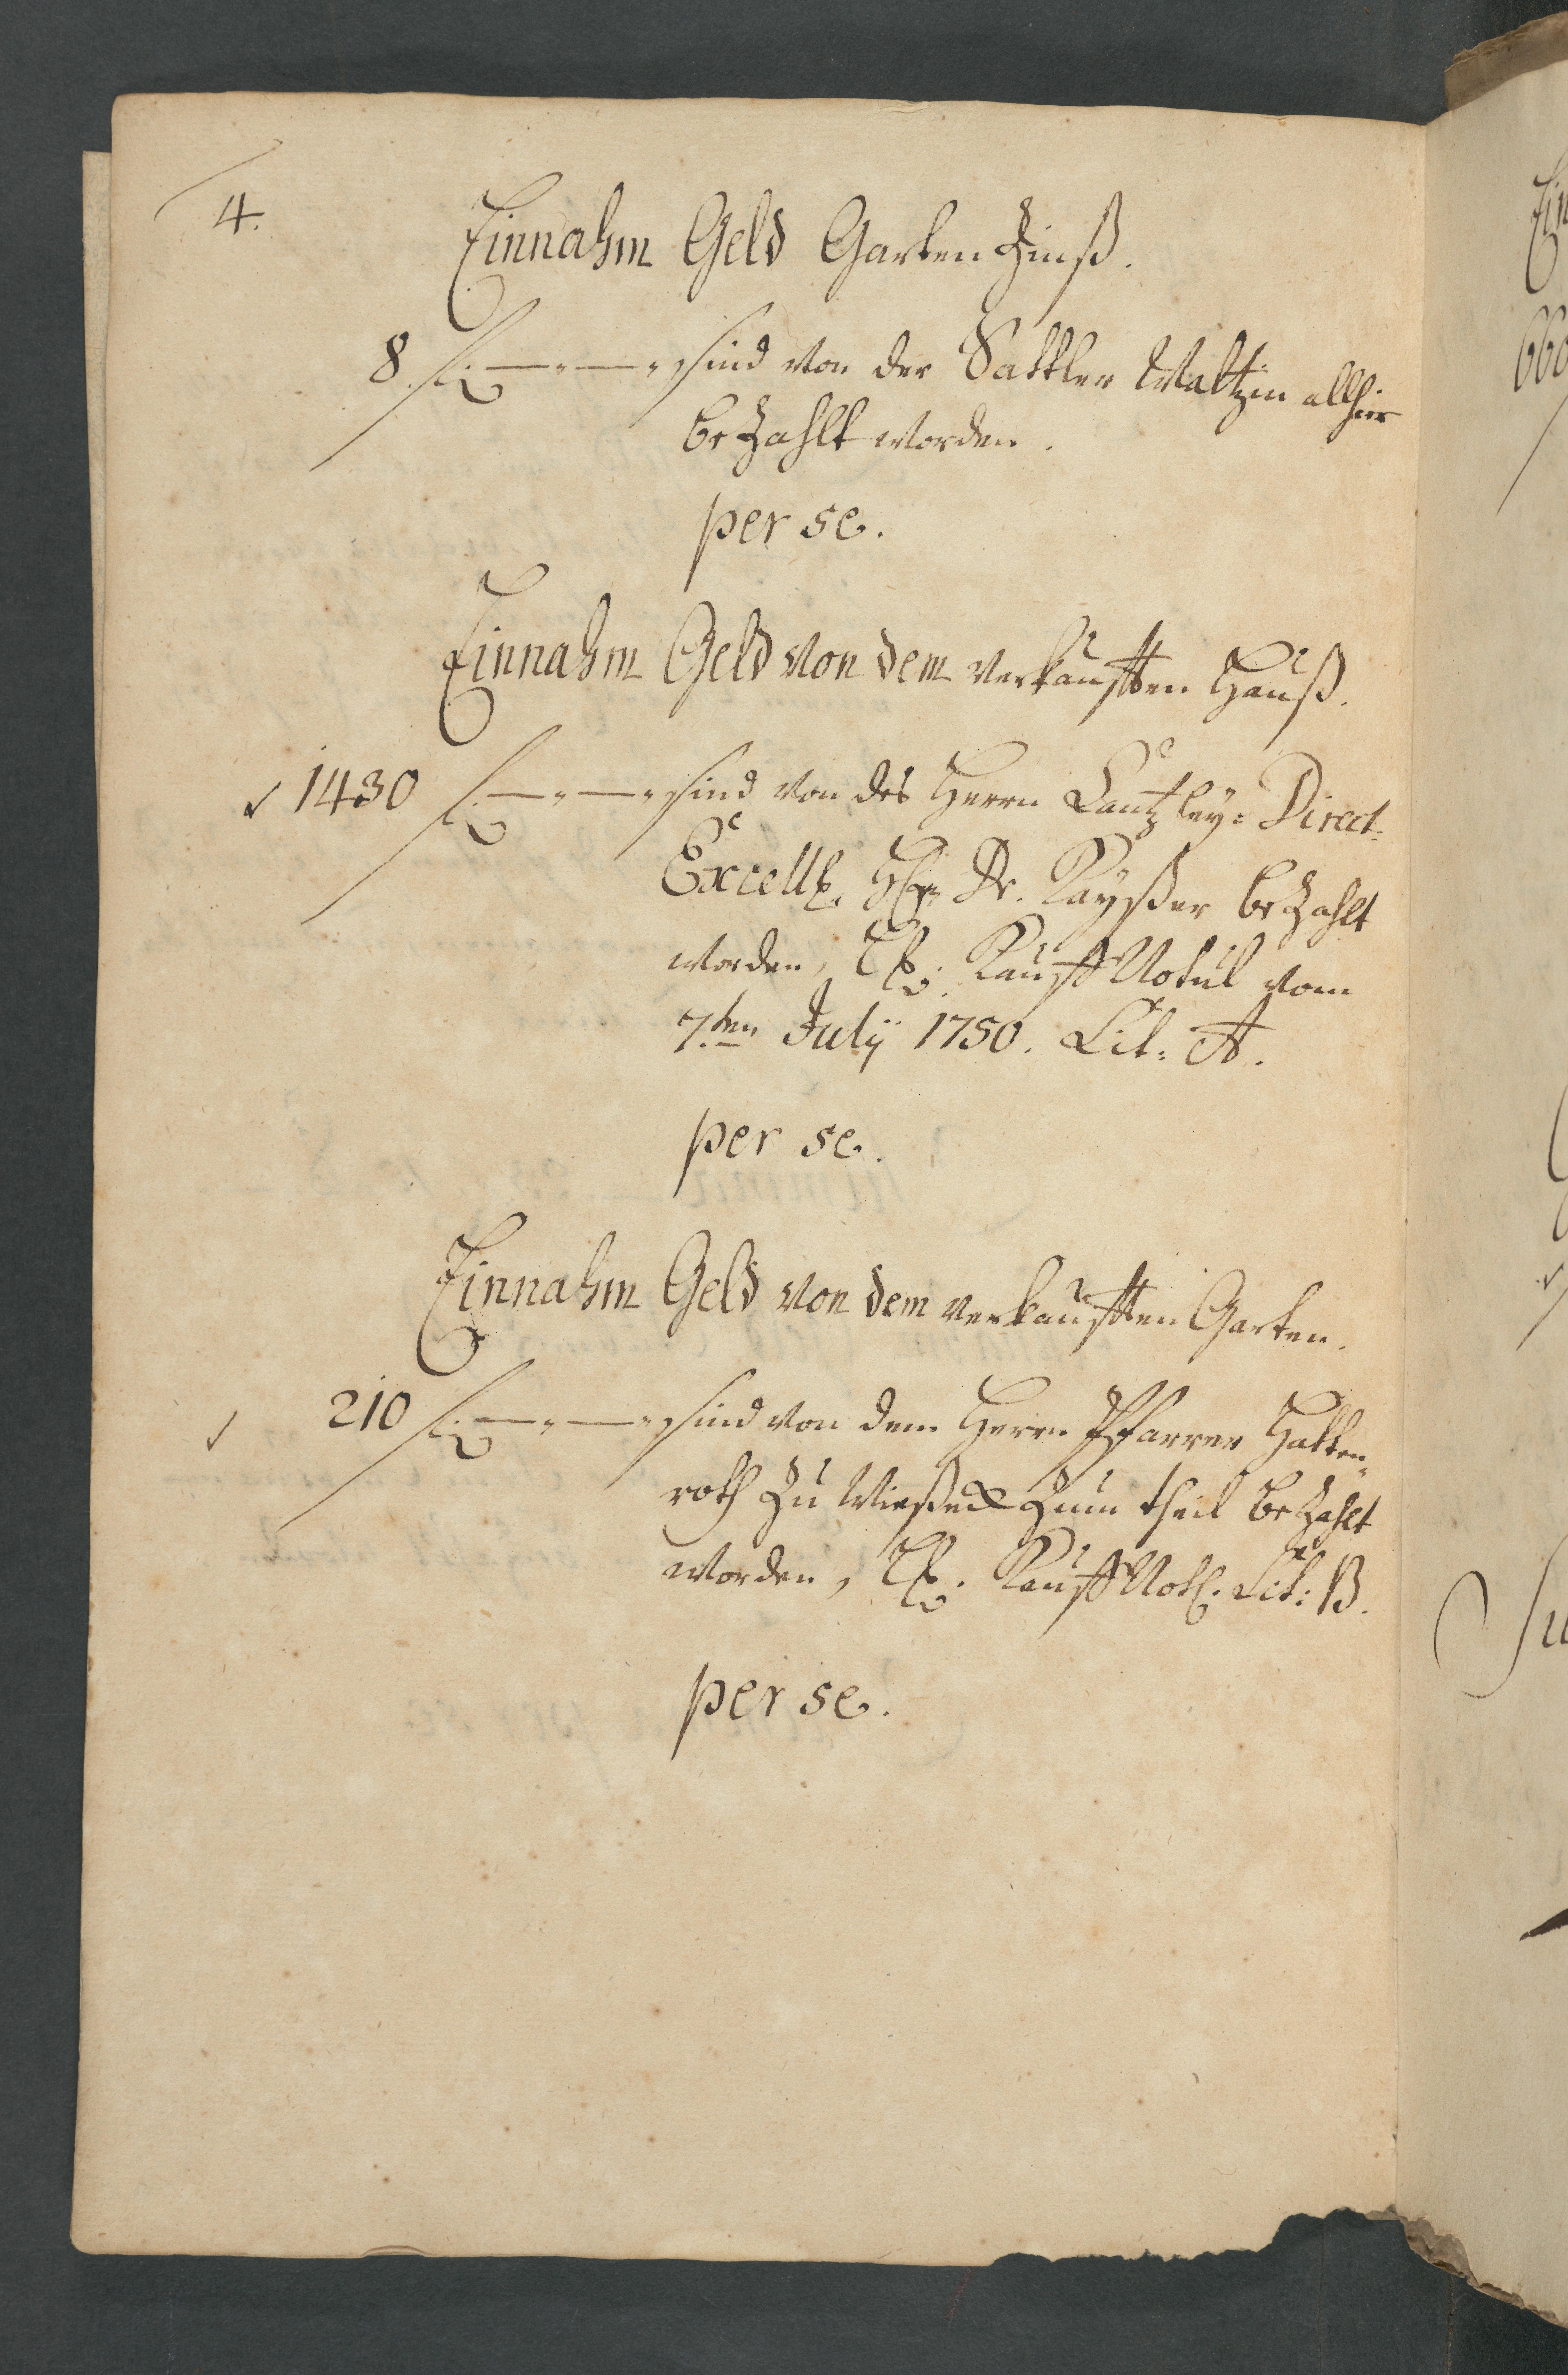 4.
Einnahm Geld Garten Zinß.
8 fl. — „ — „ sind von der Sattler Waltzin allhier
bezahlt worden.
per se.
Einnahm Geld von dem verkaufften Hauß.
1430 fl. — „ — „ sind von des Herrn Cantzley-Direct.
Excell. H. Dr. Kayßer bezahlt
worden, Kauff Notul vom
7.ten Julÿ 1750. Lit: A.
per se.
Einnahm Geld von dem verkaufften Garten.
210 fl. — „ — „ sind von dem Herrn Pfarrer Hatten-
roth zu Wießeck zum theil bezahlt
worden, Kauff Not. Lit: B.
per se.